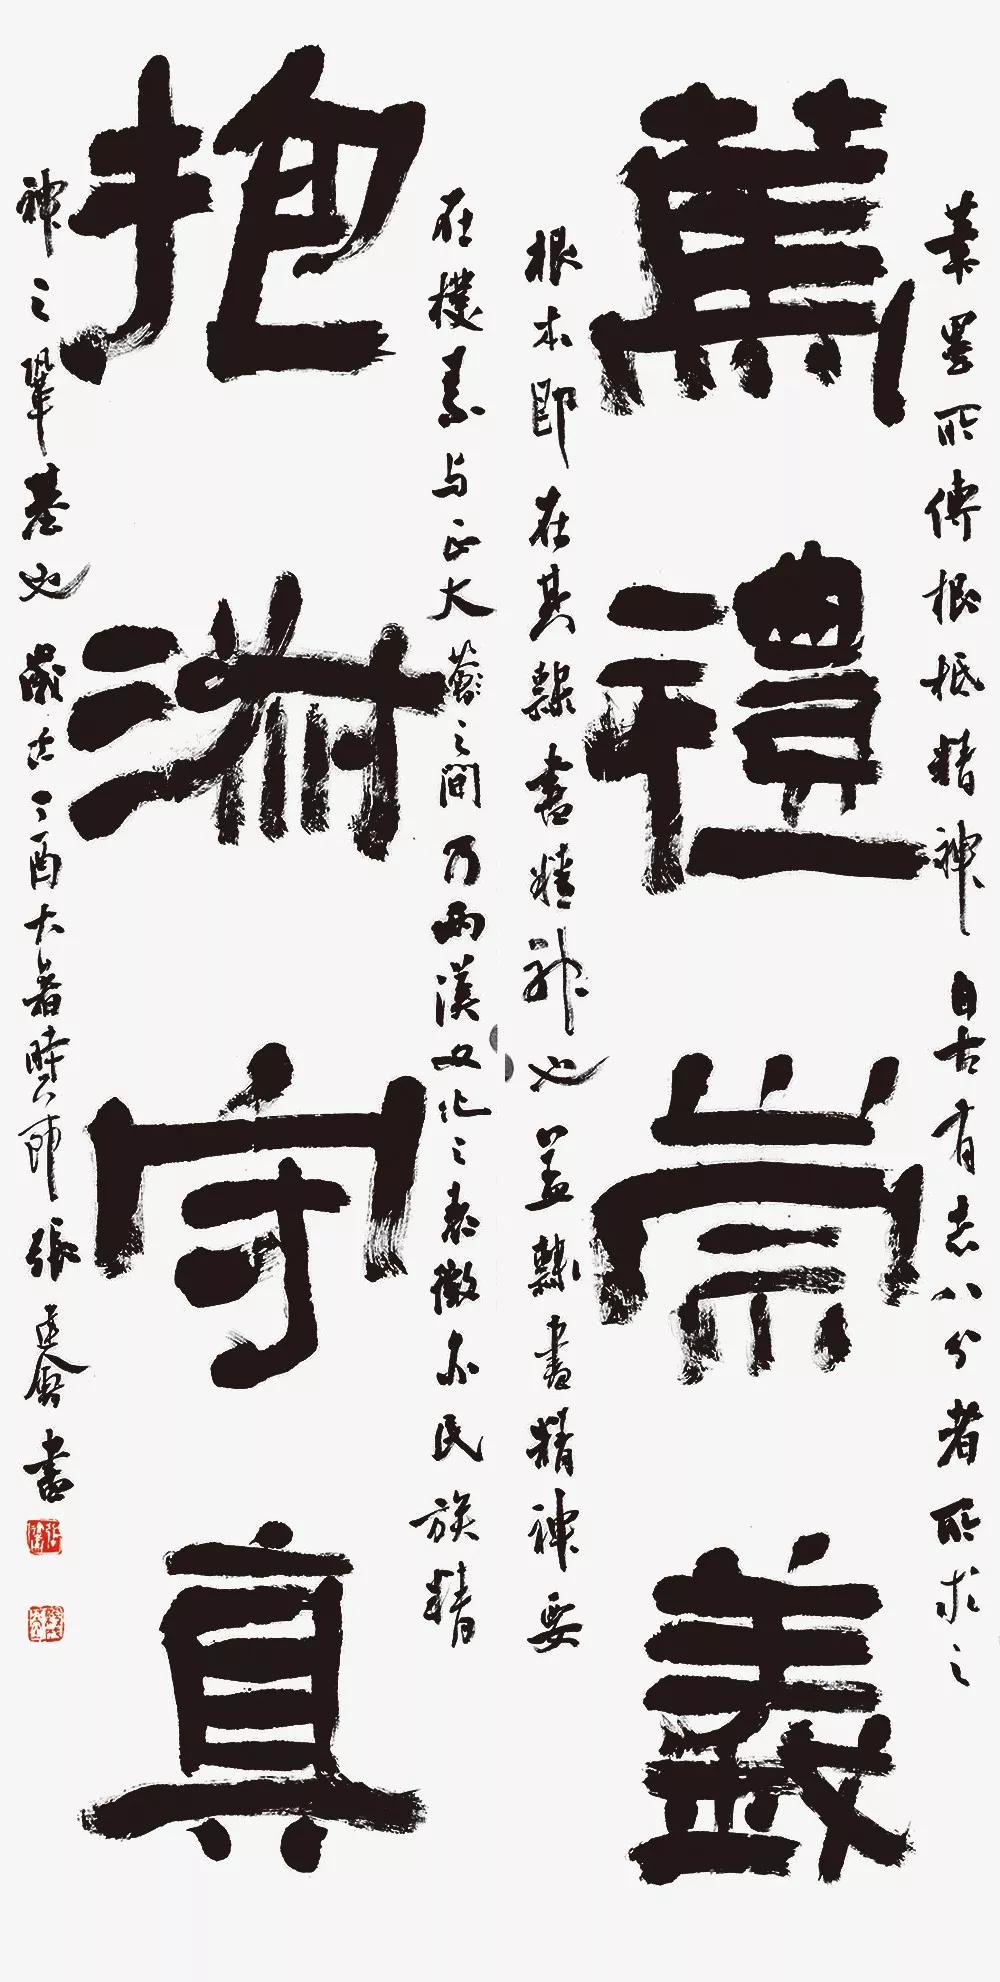 篤禮崇義
所傳根柢精神自古有志八分者所求之
根本即在其隸書精神也蓋隸書精神要
抱淑守真
在樸素与正大之間乃兩漢文化之表徵亦民族精
神之鞏基也歲在丁酉大暑張建會書